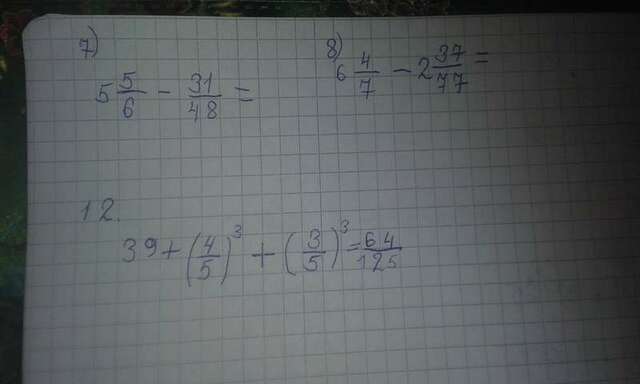 7) 5 5/6 - 31/48 =
8) 6 4/7 - 2 37/77 =
12.
39 + (4/5)^3 + (3/5)^3 = 64/125